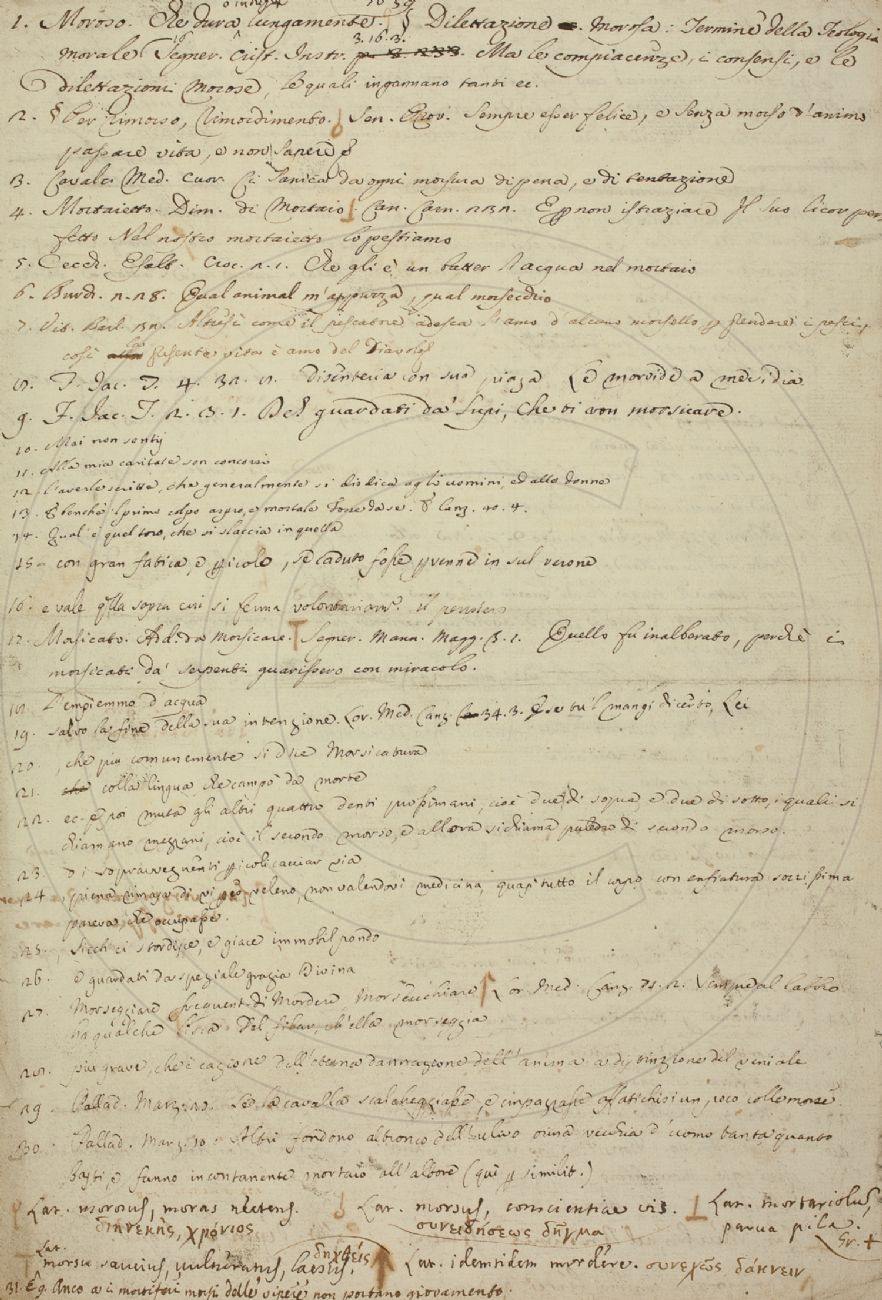 o indugia
1. Moroso. Che dura lungamente. § Dilettazione morosa: Termine della Teologia
morale Segner. Crist. Instr. 3. 16. 3. Ma le compiacenze, i consensi, e le
dilettazioni morose, le quali ingannano tanti ec.
2. § Per Rimorso, Rimordimento. Sen. Prov. Sempre esser felice, e senza morso d'animo
passare vita, e non sapere
3. Cavalc. Med. cuor. Ci sanica da ogni morsura di pena, e di tentazione
4. Mortaietto. Dim. di Mortaio. Can. Carn. E p non istraziare Il suo licor per-
fetto Nel nostro mortaietto lo pestiamo
5. Cecch. Esalt. Cr. Che gli è un batter l'acqua nel mortaio
6. Burch. Qual animal m'appuzza, qual morsecchio
7. Vit. Barl. Altresì come il pescatore adesca l'amo d'alcuno morsello p prendere i pesci,
così presente vita è amo del Diavolo
8. F. Jac. T. 4. Disenteria con sua
9. F. Jac. T. 2. 3. 1. Deh guardati da' Lupi, che ti von morsicare.
10. Mai non sentij
11. Alla mia caritate son
12. l'averle scritte, che generalmente si disdica agli uomini, ed alle donne
13. E benchè 'l primo colpo aspro, e mortale Fosse da se. Canz. 40. 4.
14. Qual'è quel toro, che si slaccia in quella
15. con gran fatica, e picolo, se caduto fosse pvenne in sul verone
16. e vale qlla sopra cui si ferma volontariamte. il pensiero
17. Morsicato. Add. da Morsicare. Segner. Mann. Magg. 3. 1. Quello fu inalberato, perchè i
morsicati da' serpenti guarissero con miracolo.
18. L'empiemmo d'acqua
19. salvo la fine della sua intenzione. Lor. Med. Canz. 34. 3. E se tu 'l mangi dicerto, Lei
20. , che più comunemente si dice Morsicatura
21. colla lingua che campò da morte
22. ec. E poi muta gli altri quattro denti prossimani, cioè due di sopra, e due di sotto, i quali si
chiamano mezzani, cioè il secondo morso, e allora si chiama puledro di secondo morso.
23. di sopravvegnenti picoli cacciar via
24. piena rimasa di veleno, non valendovi medicina, quasi tutto il corpo con enfiatura sozzissima
pareva che occupasse.
25. Sicch'ei stordisce, e giace immobil pondo
26. e guardati da speziale grazia Divina
27. Morseggiare frequent. di Mordere Morsecchiare Lor. Med. Canz. 75. 2. Ven
ha qualche ch'ella morseggia
28. più grave, che è cagione dell'eterna dannazione dell'anima a distinzione del veniale
29. Pallad. Marz. Se la cavalla scalcheggiasse, e cinpazzasse affatichisi un poco colle morse
30. Pallad. Marz. Altri fondono al tronco dell'ulivo orina vecchia d'uomo tanta quanto
basti, e fanno incontanente mortaio all'albore (qui p similit.)
Lat. morosus, moras nectens. Lat. morsus, conscientiae vis. Lat. mortariolus,
διηνεκής, χρόνιος συνειδήσεως δῆγμα parva pila.
Gr. +
Lat. morsu saucius, vulneratus, laesus. δηχθείς Lat. identidem mordere. συνεχῶς δάκνειν
31. Eg. Anco a i mortiferi morsi delle vipere non portano giovamento.